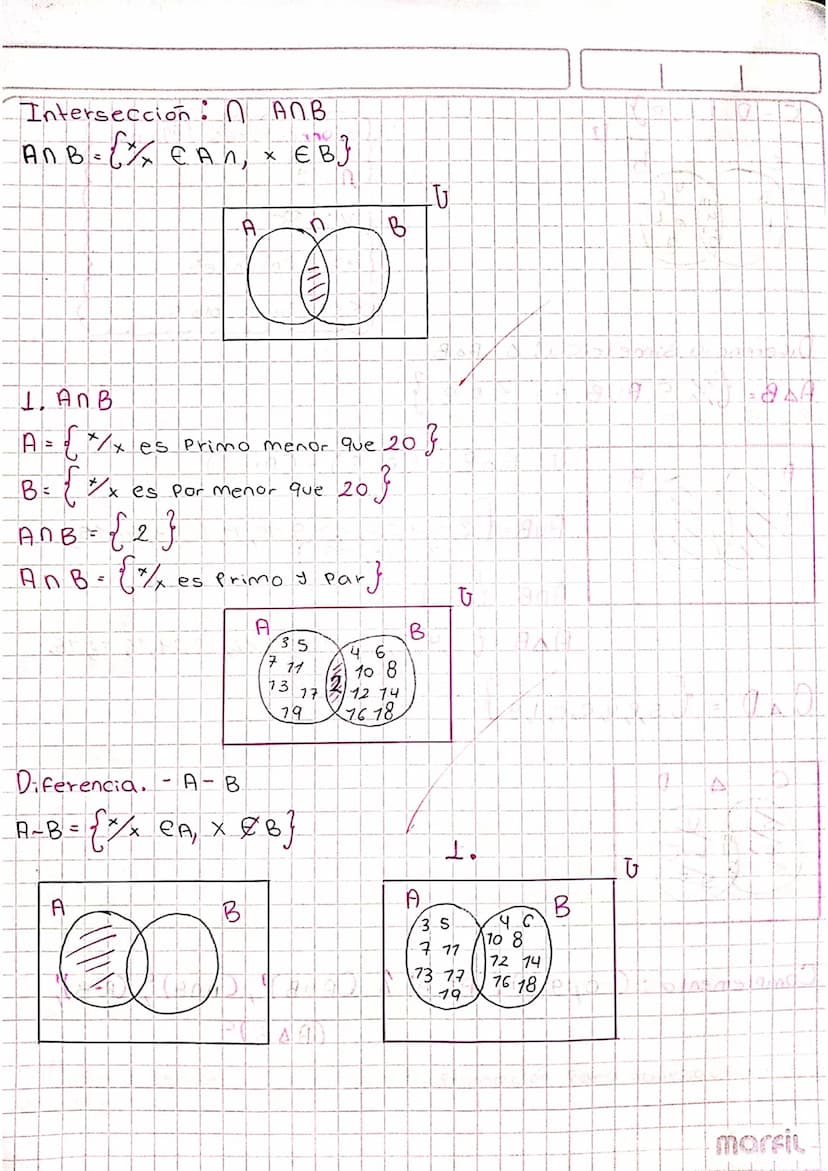 Intersección: ∩ A∩B
A∩B = {x/x ∈ A ∩, x ∈ B}
U
A ∩ B
1. A∩B
A = {x/x es Primo menor que 20}
B = {x/x es par menor que 20}
A∩B = {2}
A∩B = {x/x es Primo y par}
U
A B
3 5 4 6
7 11 10 8
13 17 2 12 14
19 16 18
Diferencia. - A - B
A-B = {x/x ∈A, x ∉ B}
1.
U
A B
A B
3 5 4 6
7 11 10 8
12 14
13 17 16 18
19
marfil